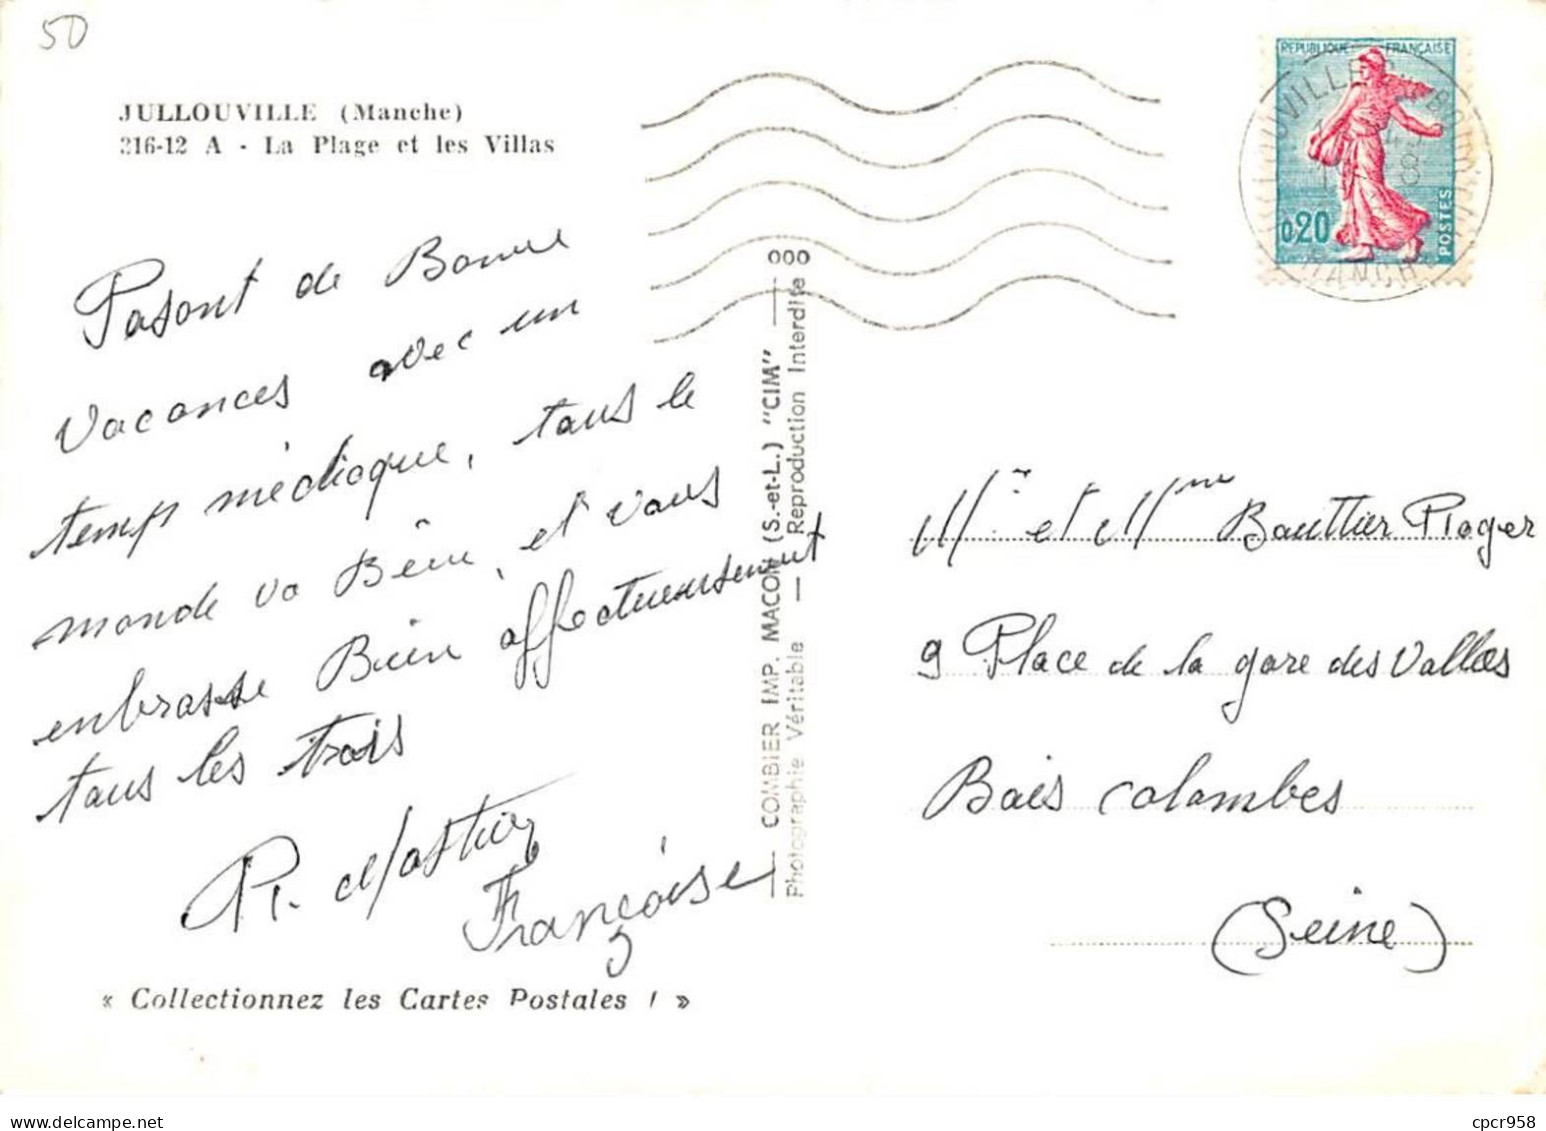 50
JULLOUVILLE (Manche)
216-12 A - La Plage et les Villas
REPUBLIQUE FRANÇAISE
0,20
POSTES
MANCHE
Pasont de Bonne
vacances avec un
temps médioque, tous le
monde va Bien, et vous
enbrasse Bien affectueusement
tous les trois
R. Mastier
Françoise
« Collectionnez les Cartes Postales ! »
000
COMBIER IMP. MACON (S.-et-L.) "CIM"
Photographie Véritable — Reproduction Interdite
Mr et Mme Bauttier Roger
9 Place de la gare des Vallees
Bois colombes
(Seine)
cpcr958